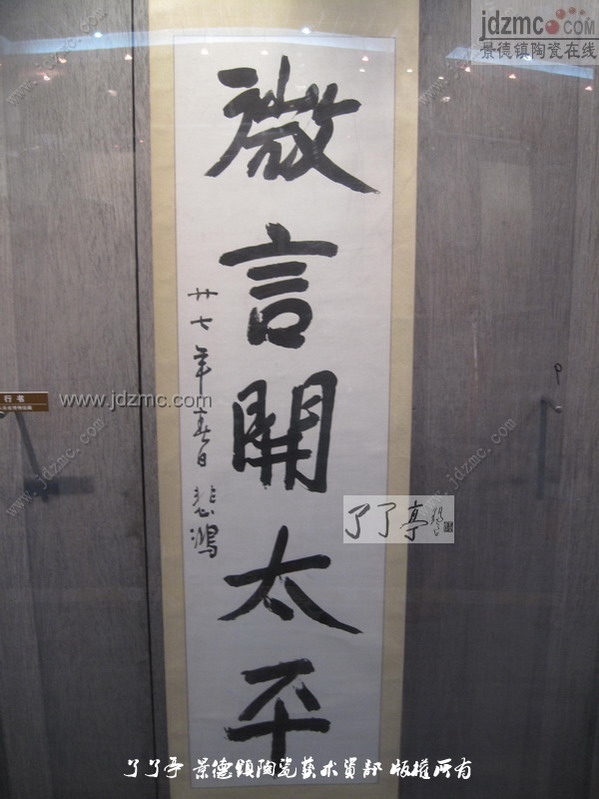 微言開太平
廿七年春日 悲鴻
行书
jdzmc.com
景德镇陶瓷在线
www.jdzmc.com
了了亭
了了亭 景德镇陶瓷艺术资部 版權所有